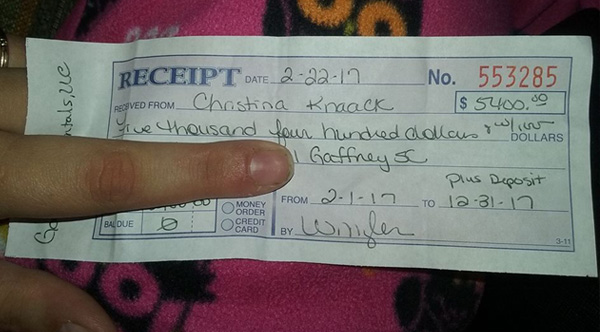 RECEIPT DATE 2-22-17 No. 553285
RECEIVED FROM Christina Knaack $ 5400.00
Five thousand four hundred dollars & no/100 DOLLARS
Gaffney SC
Plus Deposit
FROM 2-1-17 TO 12-31-17
MONEY ORDER
BAL DUE 0 CREDIT CARD BY
3-11
ntals, LLC